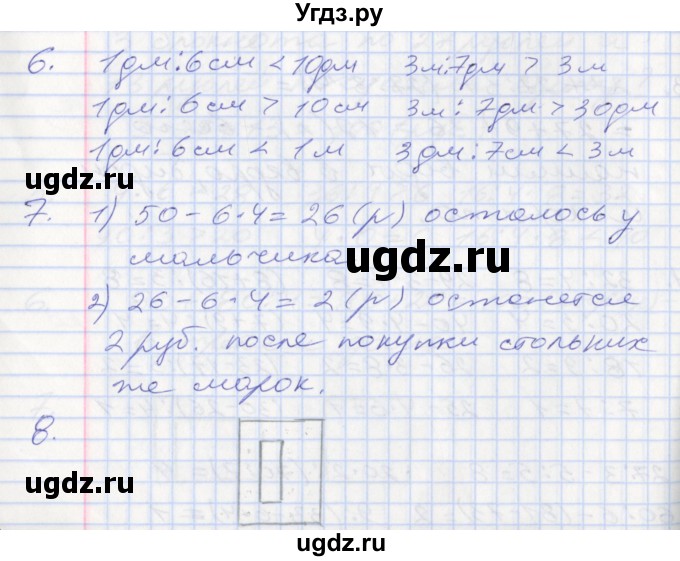 Угдз.ру
6. 1дм:6см < 10дм 3м:7дм > 3м
1дм: 6см > 10см 3м: 7дм > 30дм
1дм: 6см < 1м 3дм:7см < 3м
ugdz.ru ugdz.ru
7. 1) 50 - 6·4 = 26 (р) осталось у
мальчика
ugdz.ru
2) 26 - 6·4 = 2 (р) останется
2 руб. после покупки стольких
же марок.
8.
ugdz.ru ugdz.ru
ugdz.ru